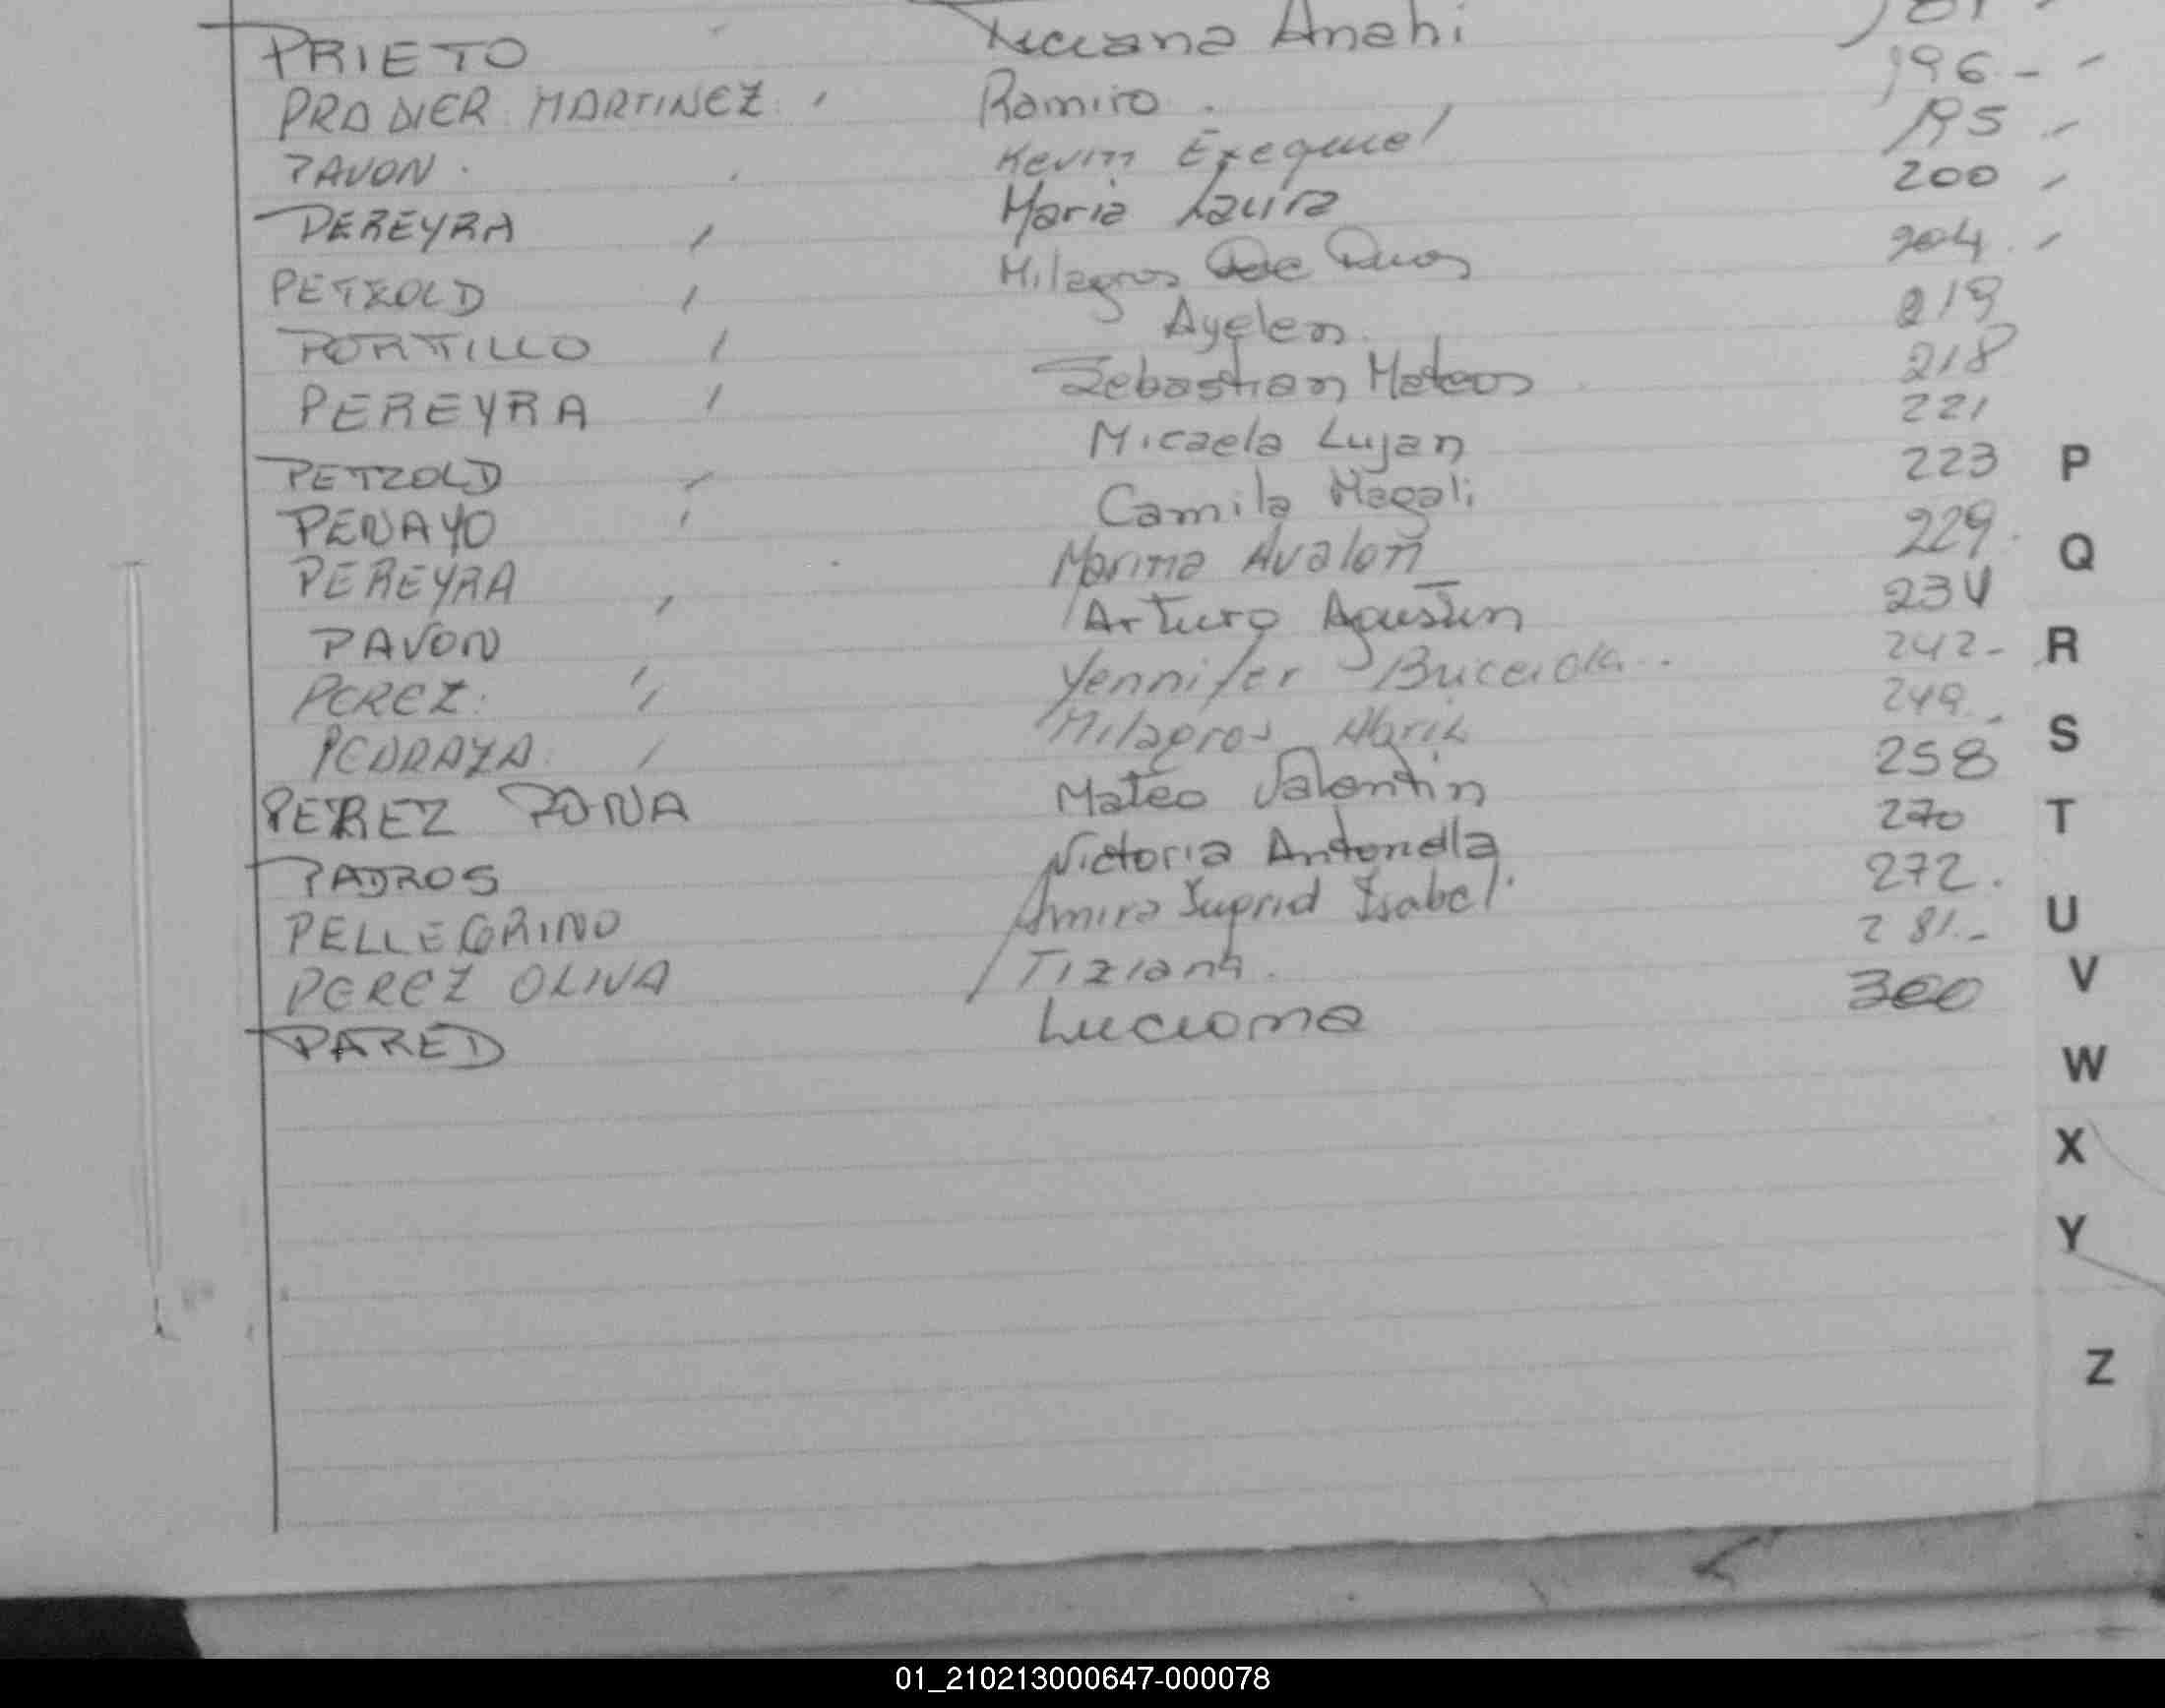 PRIETO Luciana Anahi 181 -
PRADIER MARTINEZ Ramiro. 196 - -
PAVON. Kevin Exequiel 195 -
PEREYRA Maria Laura 200
PETZOLD Milagros 204.
PORTILLO Ayelen. 219
PEREYRA Sebastian Mateos 218
PETZOLD Micaela Lujan 221
PENAYO Camila Magali 223
PEREYRA Marina Avalon 229.
PAVON Arturo Agustin 234
PEREZ. Yennifer 242-
PEDRAZA. Milagros 249
PEREZ PONA Mateo Valentin 258
PADROS Victoria Antonella 270
PELLEGRINO Amira Isabel 272.
PEREZ OLIVA Tiziana. 281.-
PARED Luciana 300
P
Q
R
S
T
U
V
W
X
Y
Z
01_210213000647-000078